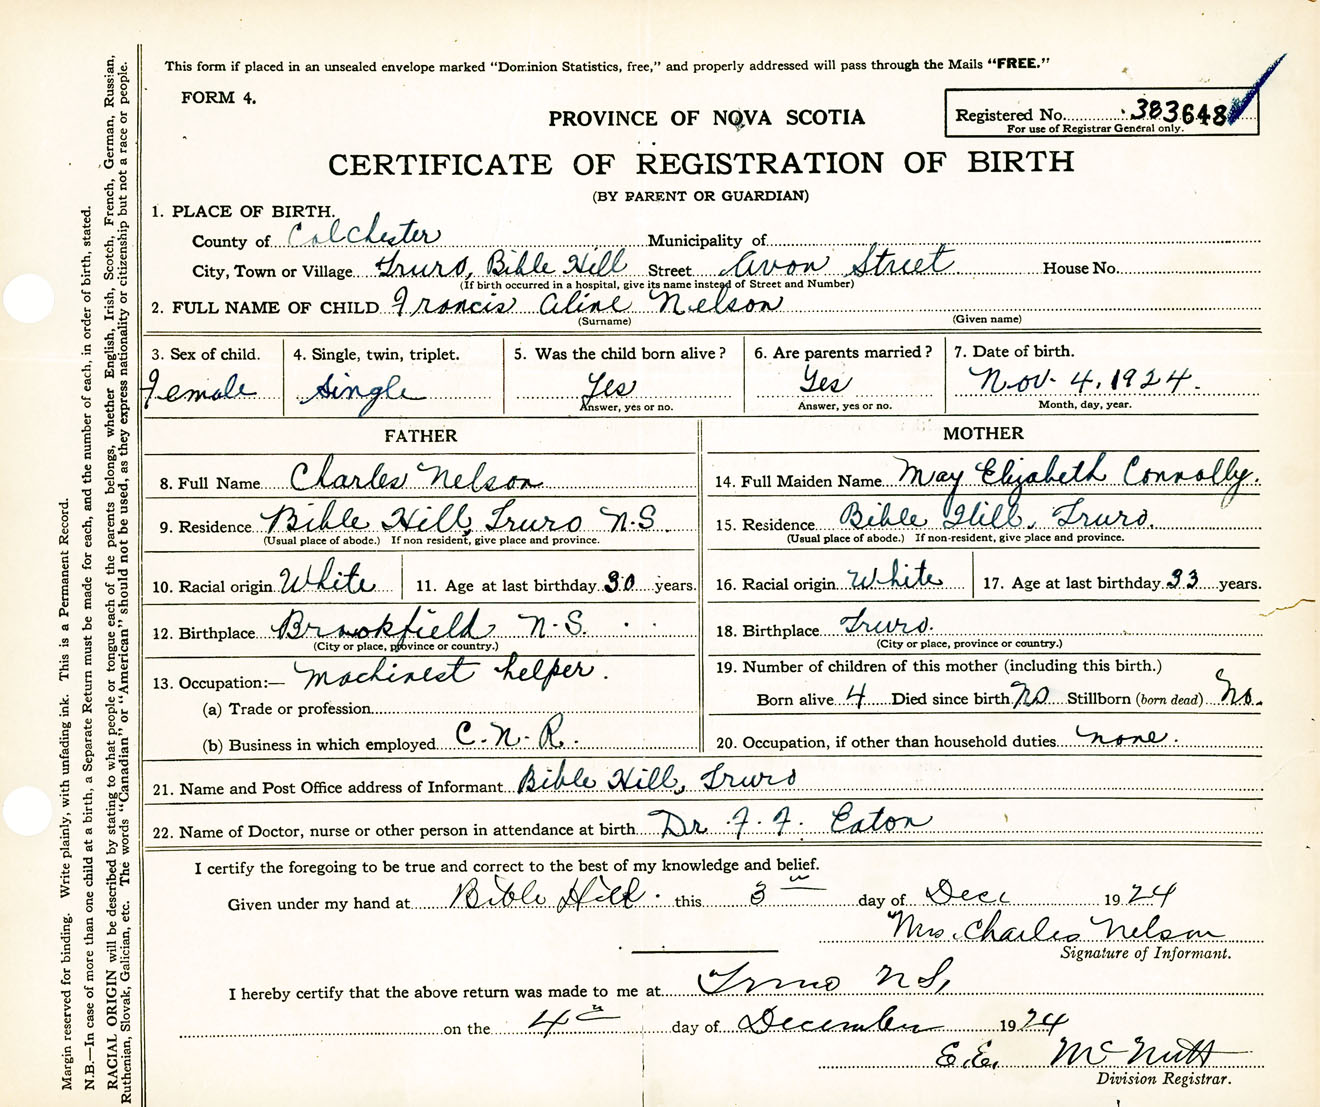 This form if placed in an unsealed envelope marked "Dominion Statistics, free," and properly addressed will pass through the Mails "FREE."
FORM 4.
PROVINCE OF NOVA SCOTIA
Registered No. 383648
For use of Registrar General only.
CERTIFICATE OF REGISTRATION OF BIRTH
(BY PARENT OR GUARDIAN)
1. PLACE OF BIRTH.
County of Colchester Municipality of
City, Town or Village Truro, Bible Hill Street Avon Street House No.
(If birth occurred in a hospital, give its name instead of Street and Number)
2. FULL NAME OF CHILD Francis Aline Nelson
(Surname) (Given name)
3. Sex of child. 4. Single, twin, triplet. 5. Was the child born alive? 6. Are parents married? 7. Date of birth.
Female Single Yes Yes Nov. 4, 1924.
Answer, yes or no. Answer, yes or no. Month, day, year.
FATHER
8. Full Name Charles Nelson
9. Residence Bible Hill, Truro N.S.
(Usual place of abode.) If non resident, give place and province.
10. Racial origin White 11. Age at last birthday 30 years.
12. Birthplace Brookfield N.S.
(City or place, province or country.)
13. Occupation:— Machinest helper.
(a) Trade or profession
(b) Business in which employed C.N.R.
MOTHER
14. Full Maiden Name May Elizabeth Connolly.
15. Residence Bible Hill, Truro.
(Usual place of abode.) If non-resident, give place and province.
16. Racial origin White 17. Age at last birthday 33 years.
18. Birthplace Truro.
(City or place, province or country.)
19. Number of children of this mother (including this birth.)
Born alive 4 Died since birth No Stillborn (born dead) No.
20. Occupation, if other than household duties none.
21. Name and Post Office address of Informant Bible Hill, Truro
22. Name of Doctor, nurse or other person in attendance at birth Dr. F. F. Eaton
I certify the foregoing to be true and correct to the best of my knowledge and belief.
Given under my hand at Bible Hill. this 3 day of Dec 1924
Mrs. Charles Nelson
Signature of Informant.
I hereby certify that the above return was made to me at Truro N S,
on the 4th day of December 1924
E.E. McNutt
Division Registrar.
Margin reserved for binding. Write plainly, with unfading ink. This is a Permanent Record.
N.B.—In case of more than one child at a birth, a Separate Return must be made for each, and the number of each, in order of birth, stated.
RACIAL ORIGIN will be described by stating to what people or tongue each of the parents belongs, whether English, Irish, Scotch, French, German, Russian,
Ruthenian, Slovak, Galician, etc. The words "Canadian" or "American" should not be used, as they express nationality or citizenship but not a race or people.